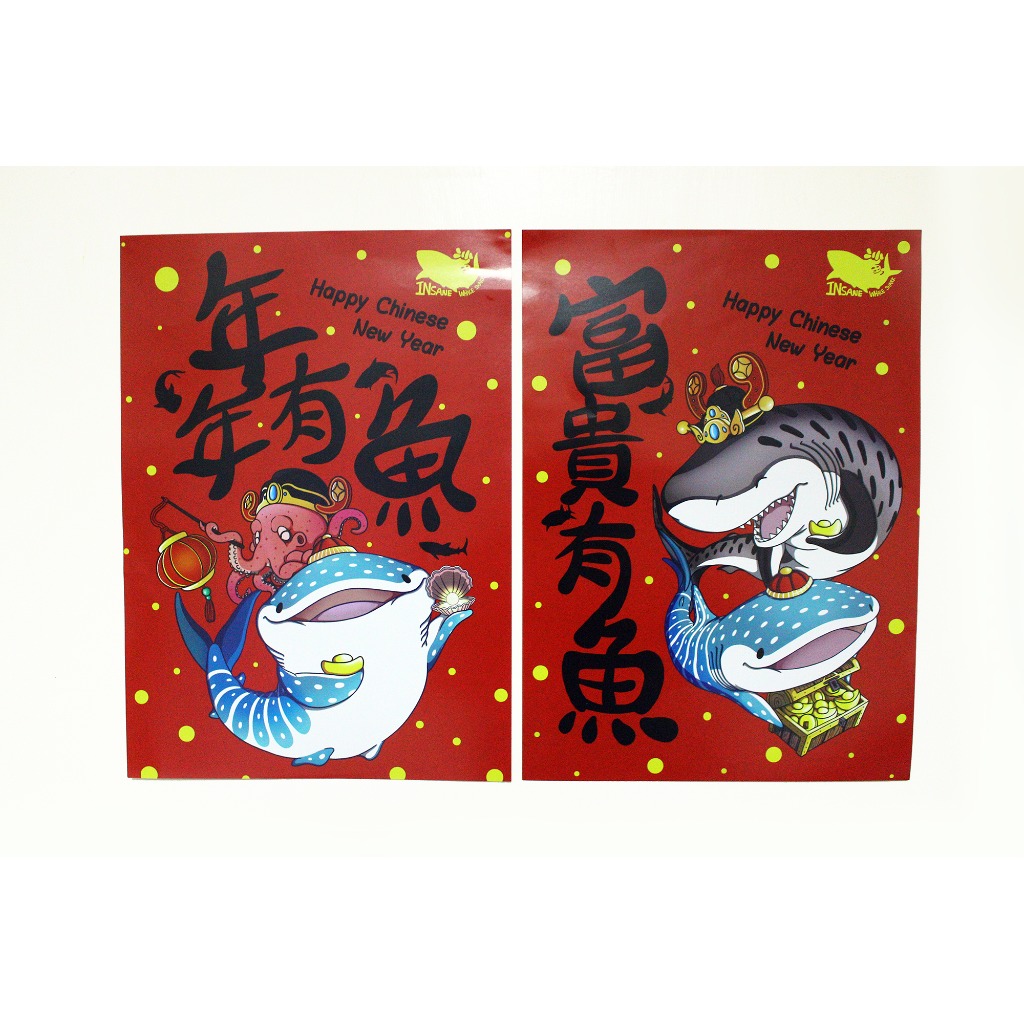 年年有魚
Happy Chinese
New Year
INSANE WHALE SHARK
富貴有魚
Happy Chinese
New Year
INSANE WHALE SHARK